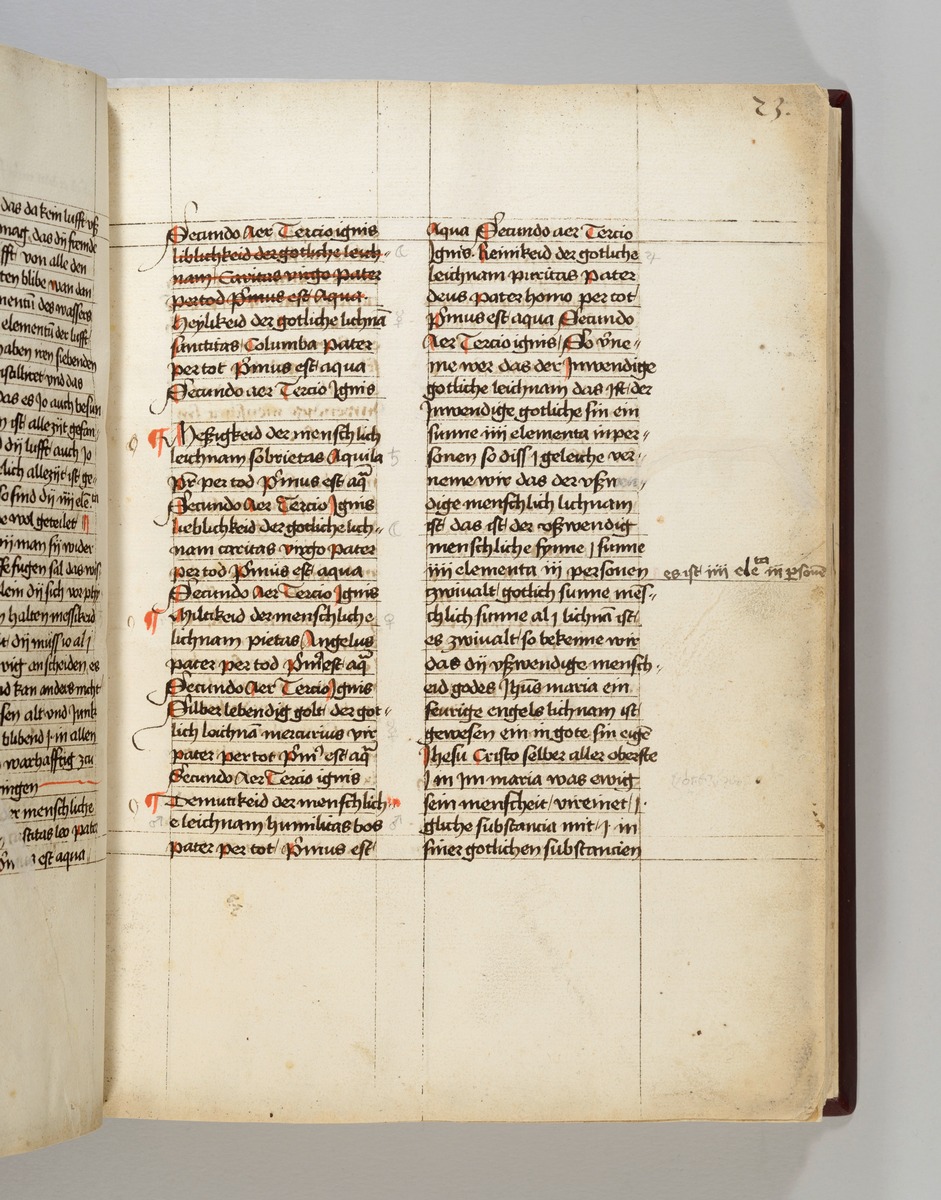 23.
das da kein lufft vß
mag das dij fremde
fft von alle den
ten blibe wan dan
mentū des wassers
elementū der lufft
haben wen siebenden
vnd das
das es Jo auch besun
ist alle zijt gesan
dij lufft auch Jo
lich allezijt ist ge
so sind dij iiij ele
wol geteilet
man sij wider
fugen sal das
dij sich
halten messikeid
dij müss io al i
an scheiden es
kan anders nicht
sen alt vnd Junk
blibend j in allen
warhafftig zcu
ringen
r menschliche
stitas leo pata
est aqua
Secundo Aer Tercio ignis
liblichkeid der gotliche leich
nam Caritas virgo pater
per tod P'mus est Aqua
heylikeid der gotliche lichnā
sanctitas Columba pater
per tot P'mus est aqua
Secundo aer Tercio Ignis
Meßigkeid der menschlich
leichnam sobrietas Aquila
Pr̄ per tod P'mus est aq̄
Secundo Aer Tercio Ignis
lieblichkeid der gotliche lich
nam caritas virgo pater
per tod P'mus est aqua
Secundo Aer Tercio Ignis
Miltikeid der menschliche
lichnam pietas Angelus
pater per tod P'm' est aq̄
Secundo Aer Tercio Ignis
Silber lebendig golt der got
lich leichnā mercurius vir
pater per tot P'm' est aq̄
Secundo Aer Tercio ignis
Demutikeid der menschlich
e leichnam humilitas bos
pater per tot P'mus est
Aqua Secundo aer Tercio
Ignis Reinikeid der gotliche
leichnam puritas Pater
deus pater homo per tot
P'mus est aqua Secundo
Aer Tercio ignis So v'ne
me wer das der Jnwendige
gotliche leichnam das ist der
Jnwendige gotliche sin ein
sunne iiij elementa in per
sonen so diss j geleiche ver
neme wir das der vßw
dige menschlich lichnam
ist das ist der vßwendig
menschliche synne j sunne
iiij elementa iij personen
zwiualt gotlich sunne mēs
chlich sunne al j lichnā ist
es zwiualt so bekenne wir
das dij vßwendige mensch
eid godes Jhūs maria ein
feurige engels lichnam ist
gewesen ein in gote sin eigē
Jhesu Cristo selber aller oberste
J in Jm maria was ewig
sein menscheit vireinet j
gliche substancia mit j in
siner gotlichen substancien
es ist iiij eleᵗᵃ iij psonē